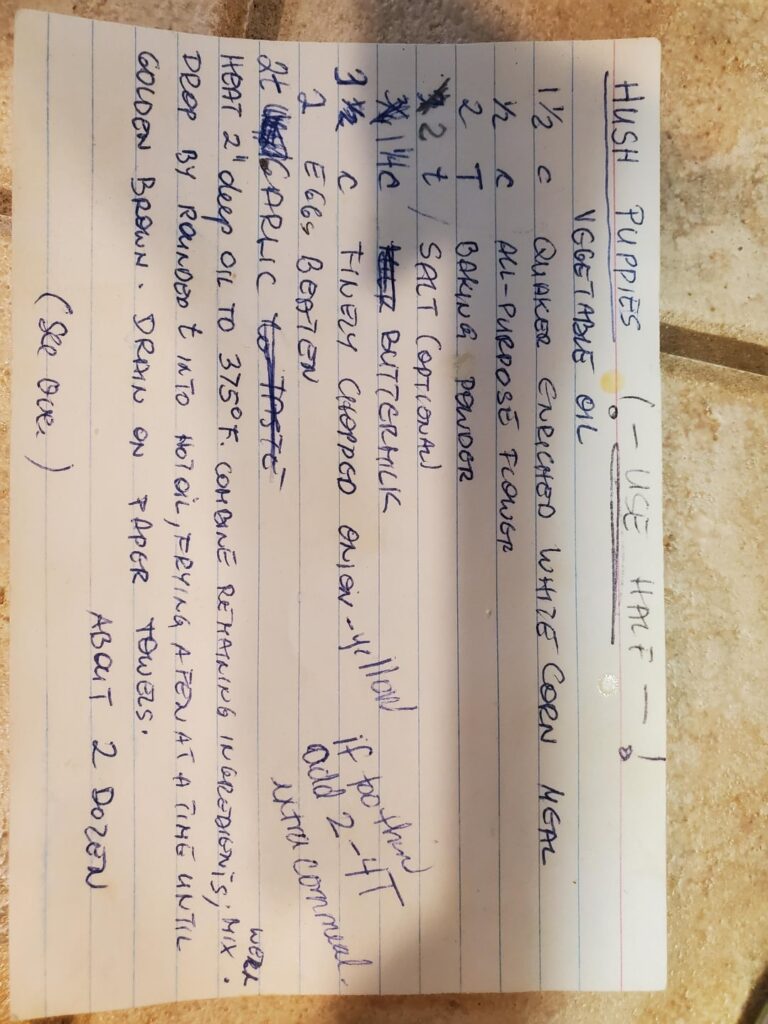 HUSH PUPPIES (- USE HALF -!
VEGETABLE OIL
1½ C QUAKER ENRICHED WHITE CORN MEAL
½ C ALL-PURPOSE FLOWER
2 T BAKING POWDER
2 t / SALT (OPTIONAL
1¼ C BUTTERMILK
3 C FINELY CHOPPED ONION - yellow
2 EGGS BEATEN
if too thin
add 2-4T
extra cornmeal.
2t GARLIC TO TASTE
HEAT 2" deep OIL TO 375°F. COMBINE REMAINING INGREDIENTS; MIX WELL.
DROP BY ROUNDED t INTO HOT OIL, FRYING A FEW AT A TIME UNTIL
GOLDEN BROWN. DRAIN ON PAPER TOWELS.
ABOUT 2 DOZEN
(See Over)